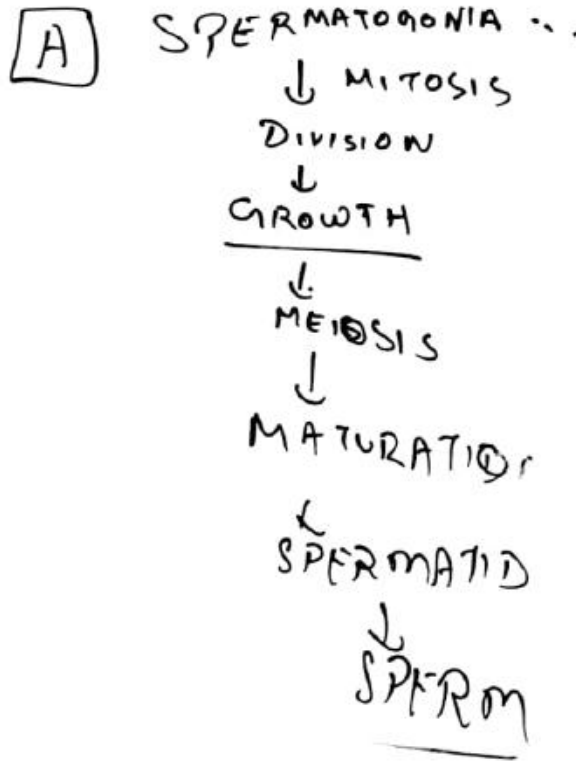 A SPERMATOGONIA ..
↓ MITOSIS
DIVISION
↓
GROWTH
↓
MEIOSIS
↓
MATURATION
↓
SPERMATID
↓
SPERM